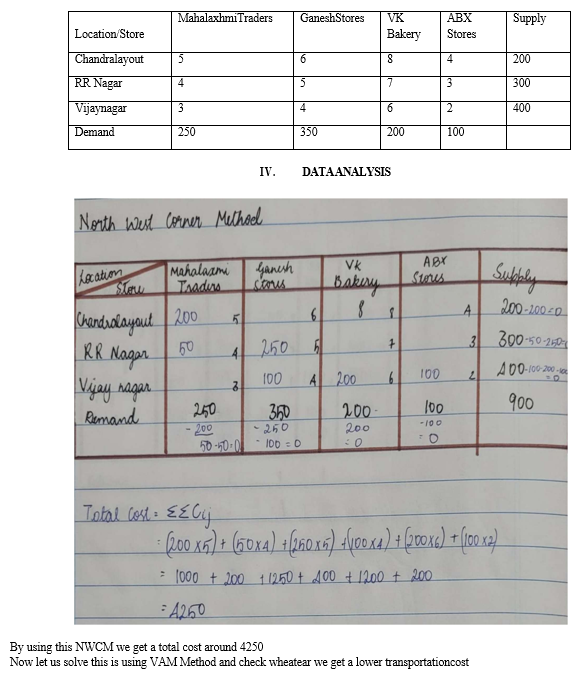 Location/Store MahalaxhmiTraders GaneshStores VK Bakery ABX Stores Supply
Chandralayout 5 6 8 4 200
RR Nagar 4 5 7 3 300
Vijaynagar 3 4 6 2 400
Demand 250 350 200 100
IV. DATAANALYSIS
North West Corner Method
Location Store Mahalaxmi Traders Ganesh Stores VK Bakery ABX Stores Supply
Chandralayout 200 5 6 8 8 4 200-200=0
RR Nagar 50 4 250 5 7 3 300-50-250=
Vijay nagar 3 100 4 200 6 100 2 400-100-200-100
=0
Demand 250 350 200 100 900
-200 -250 200 -100
50-50=0 -100=0 =0 =0
Total Cost = ΣΣCij
= (200x5) + (50x4) + (250x5) + (100x4) + (200x6) + (100x2)
= 1000 + 200 + 1250 + 400 + 1200 + 200
= 4250
By using this NWCM we get a total cost around 4250
Now let us solve this is using VAM Method and check wheatear we get a lower transportationcost